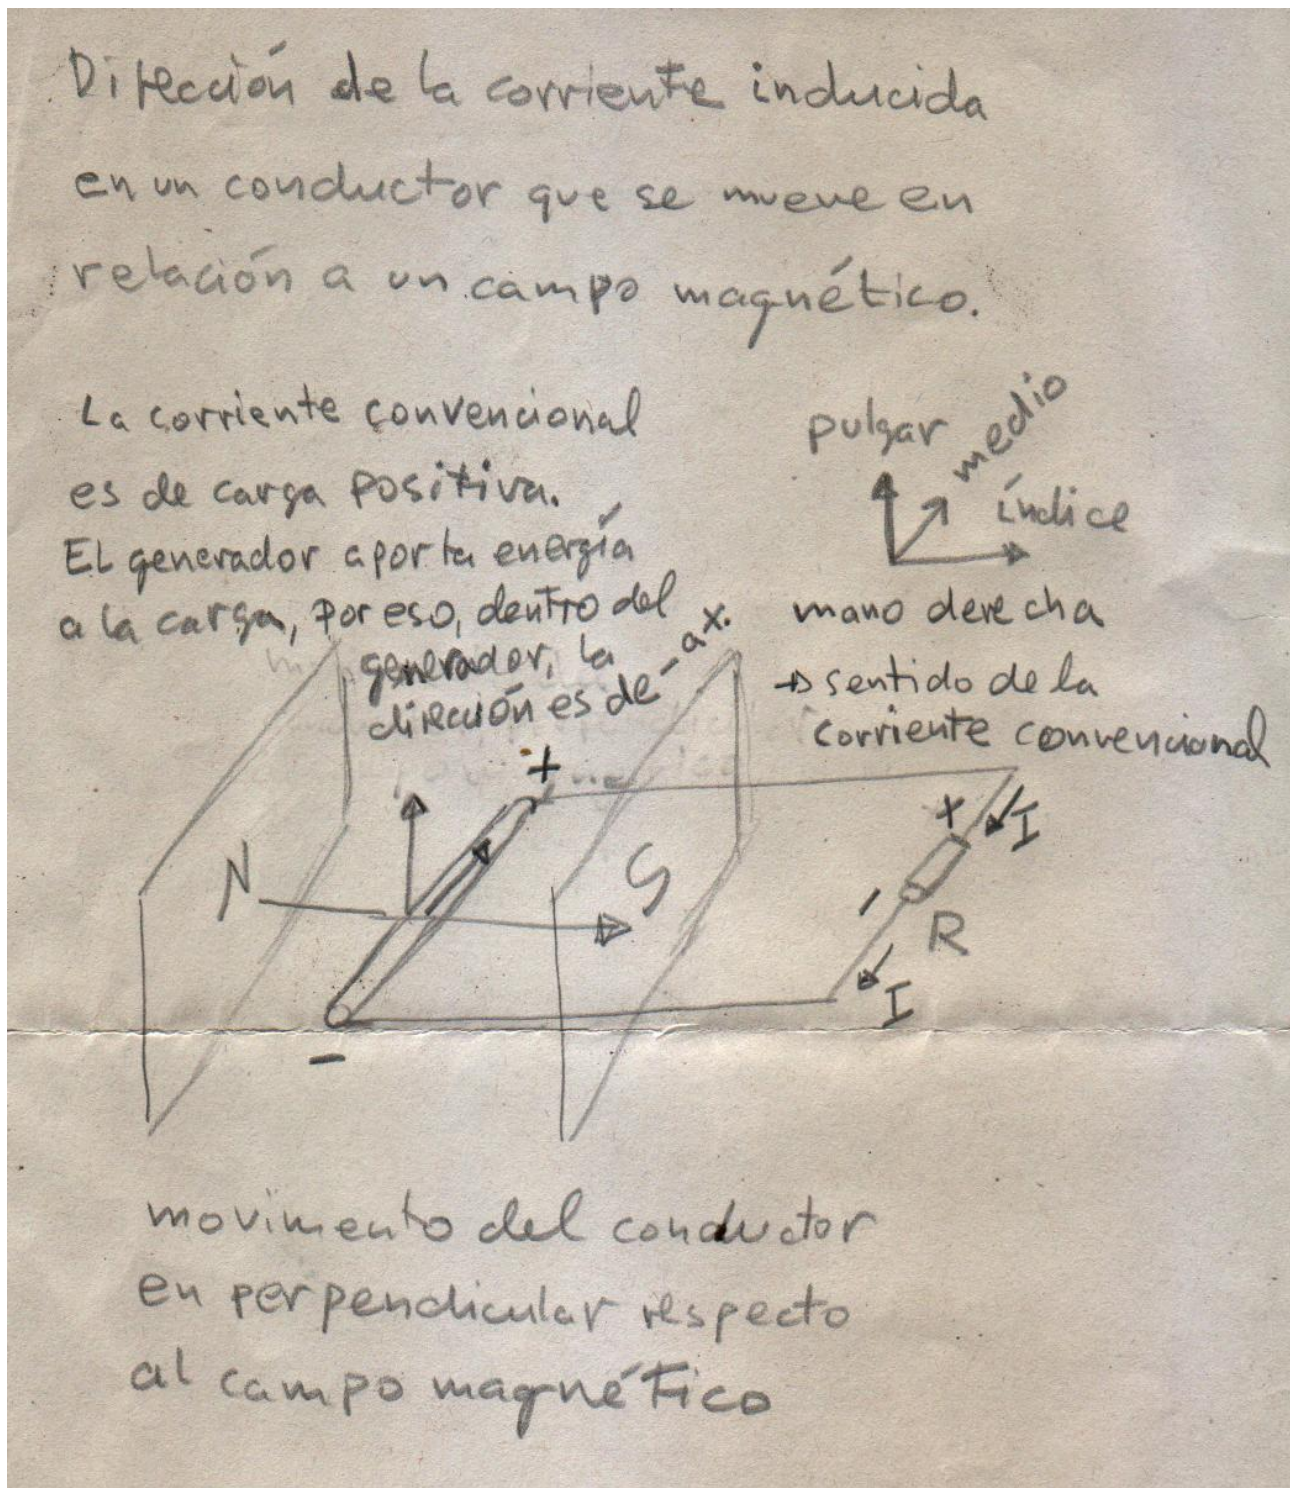 Dirección de la corriente inducida
en un conductor que se mueve en
relación a un campo magnético.
La corriente convencional
es de carga positiva.
El generador aporta energía
a la carga, por eso, dentro del
generador, la
dirección es de - a +.
pulgar
medio
índice
mano derecha
→ sentido de la
corriente convencional
+
N
S
-
+
I
-
R
I
movimento del conductor
en perpendicular respecto
al campo magnético